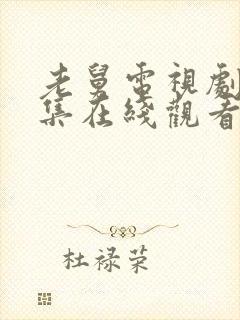 老舅電視劇
集在綫觀看
杜禄荣